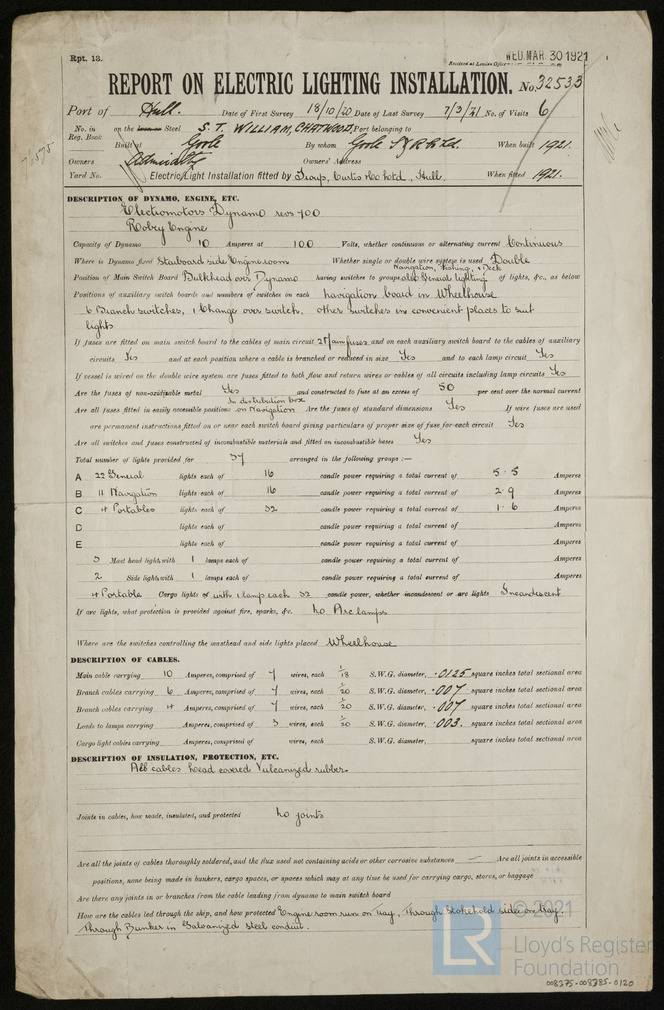 Rpt. 13.
WED. MAR. 30 1921
Received at London Office
REPORT ON ELECTRIC LIGHTING INSTALLATION. No. 32533
Port of Hull. Date of First Survey 18/10/20 Date of Last Survey 7/3/21 No. of Visits 6
No. in Reg. Book on the Iron or Steel S. T. WILLIAM CHATWOOD Port belonging to
Built at Goole By whom Goole S.B & R Co Ltd. When built 1921.
Owners Admiralty Owners' Address
Yard No. Electric Light Installation fitted by Troup, Curtis & Co Ltd., Hull. When fitted 1921.
DESCRIPTION OF DYNAMO, ENGINE, ETC.
Electromotors Dynamo revs 700
Robey Engine
Capacity of Dynamo 10 Amperes at 100 Volts, whether continuous or alternating current Continuous
Where is Dynamo fixed Starboard side Engine room Whether single or double wire system is used Double
Navigation, Fishing, & Deck
Position of Main Switch Board Bulkhead over Dynamo having switches to groups also General lighting of lights, &c., as below
Positions of auxiliary switch boards and numbers of switches on each navigation board in Wheelhouse
6 Branch switches, 1 Change over switch. other switches in convenient places to suit
lights
If fuses are fitted on main switch board to the cables of main circuit fuses and on each auxiliary switch board to the cables of auxiliary
circuits Yes and at each position where a cable is branched or reduced in size Yes and to each lamp circuit Yes
If vessel is wired on the double wire system are fuses fitted to both flow and return wires or cables of all circuits including lamp circuits Yes
Are the fuses of non-oxidizable metal Yes and constructed to fuse at an excess of 50 per cent over the normal current
In distribution box
Are all fuses fitted in easily accessible positions on Navigation Are the fuses of standard dimensions Yes If wire fuses are used
are permanent instructions fitted on or near each switch board giving particulars of proper size of fuse for each circuit Yes
Are all switches and fuses constructed of incombustible materials and fitted on incombustible bases Yes
Total number of lights provided for 37 arranged in the following groups :—
A 22 General lights each of 16 candle power requiring a total current of 5.5 Amperes
B 11 Navigation lights each of 16 candle power requiring a total current of 2.9 Amperes
C 4 Portables lights each of 32 candle power requiring a total current of 1.6 Amperes
D lights each of candle power requiring a total current of Amperes
E lights each of candle power requiring a total current of Amperes
3 Mast head light with 1 lamps each of candle power requiring a total current of Amperes
2 Side light with 1 lamps each of candle power requiring a total current of Amperes
4 Portable Cargo lights of with 1 lamp each 32 candle power, whether incandescent or arc lights Incandescent
If arc lights, what protection is provided against fire, sparks, &c. No Arc lamps
Where are the switches controlling the masthead and side lights placed Wheelhouse
DESCRIPTION OF CABLES.
Main cable carrying 10 Amperes, comprised of 7 wires, each 1/18 S.W.G. diameter, .0125 square inches total sectional area
Branch cables carrying 6 Amperes, comprised of 7 wires, each 1/20 S.W.G. diameter, .007 square inches total sectional area
Branch cables carrying 4 Amperes, comprised of 7 wires, each 1/20 S.W.G. diameter, .007 square inches total sectional area
Leads to lamps carrying Amperes, comprised of 3 wires, each 1/20 S.W.G. diameter, .003. square inches total sectional area
Cargo light cables carrying Amperes, comprised of wires, each S.W.G. diameter, square inches total sectional area
DESCRIPTION OF INSULATION, PROTECTION, ETC.
All cables Lead covered Vulcanized rubber.
Joints in cables, how made, insulated, and protected No joints
Are all the joints of cables thoroughly soldered, and the flux used not containing acids or other corrosive substances — Are all joints in accessible
positions, none being made in bunkers, cargo spaces, or spaces which may at any time be used for carrying cargo, stores, or baggage
Are there any joints in or branches from the cable leading from dynamo to main switch board
How are the cables led through the ship, and how protected Engine room run on tray, Through Stokehold sides on tray.
Through Bunker in Galvanized steel conduit.
© 2021
LR
Lloyd's Register
Foundation
008375-008385-0120